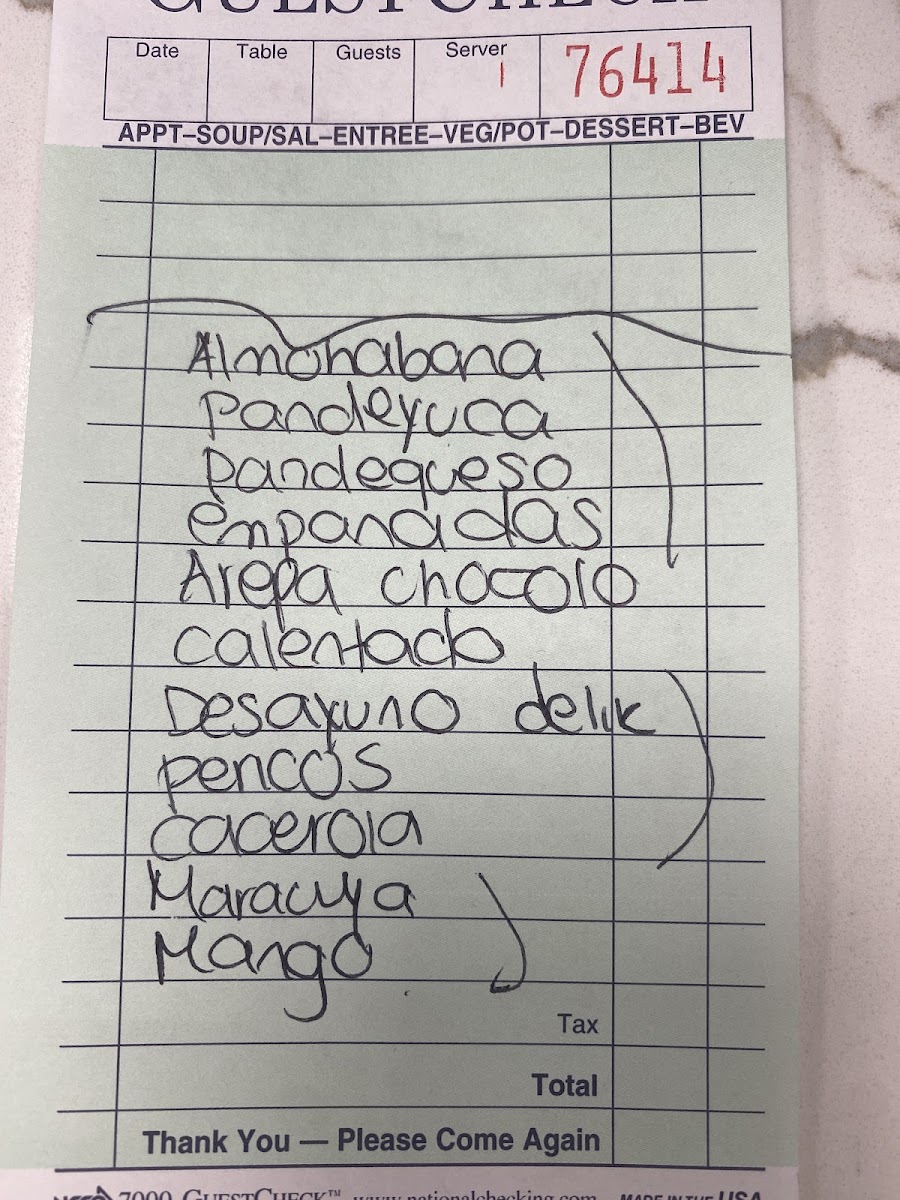 GUEST CHECK
Date Table Guests Server
1 76414
APPT–SOUP/SAL–ENTREE–VEG/POT–DESSERT–BEV
Almohabana
Pandeyuca
pandequeso
empanadas
Arepa chocolo
calentado
Desayuno delik
pencos
cacerola
Maracuya
Mango
Tax
Total
Thank You — Please Come Again
7000 GUESTCHECK™ www.nationalchecking.com MADE IN THE USA